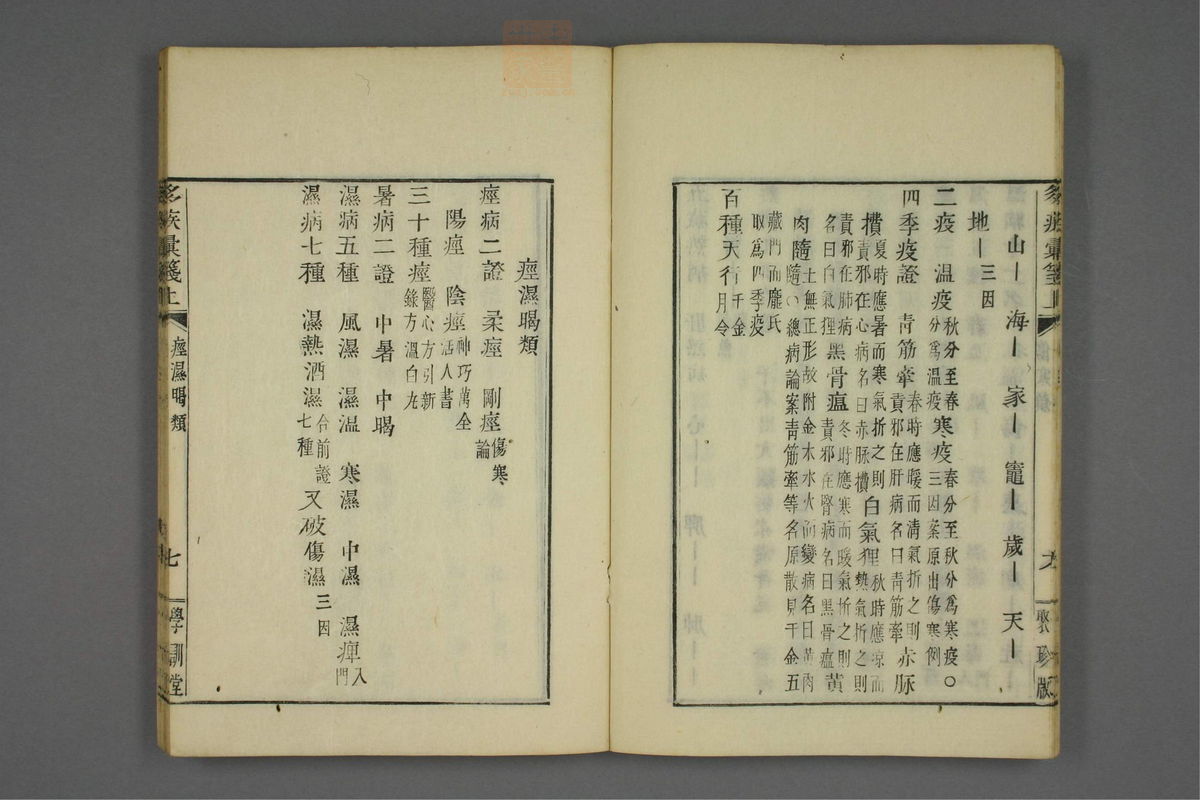 多疾彙箋上
九
聚珍版
山｜海｜家｜竈｜歲｜天｜
地｜三因
二疫 温疫秋分至春分爲温疫寒疫春分至秋分爲寒疫○三因案原出傷寒例
四季疫證 青筋牽春時應暖而清氣折之則責邪在肝病名曰青筋牽赤脉
攢夏時應暑而寒氣折之則責邪在心病名曰赤脉攢白氣狸秋時應凉而熱氣折之則
責邪在肺病名曰白氣狸黑骨瘟冬時應寒而暖氣折之則責邪在腎病名曰黑骨瘟黄
肉隨土無正形故附金木水火而變病名曰黄肉隨○總病論案青筋牽等名原散見千金五
藏門而龐氏取爲四季疫
百種天行千金月令
痙濕暍類
痙病二證 柔痙 剛痙傷寒論
陽痙 陰痙神巧萬全活人書
三十種痙醫心方引新錄方溫白丸
暑病二證 中暑 中暍
濕病五種 風濕 濕温 寒濕 中濕 濕痺入門
濕病七種 濕熱酒濕合前證七種又破傷濕三因
多疾彙箋上
痙濕暍類
七
學訓堂